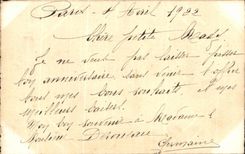 Paris - 4 Avril 1922
Chère petite
Je ne veux pas laisser passer
ton anniversaire sans venir t'offrir
tous mes bons souhaits et mes
meilleurs baisers.
Mon bon souvenir à Madame &
Monsieur
Germaine